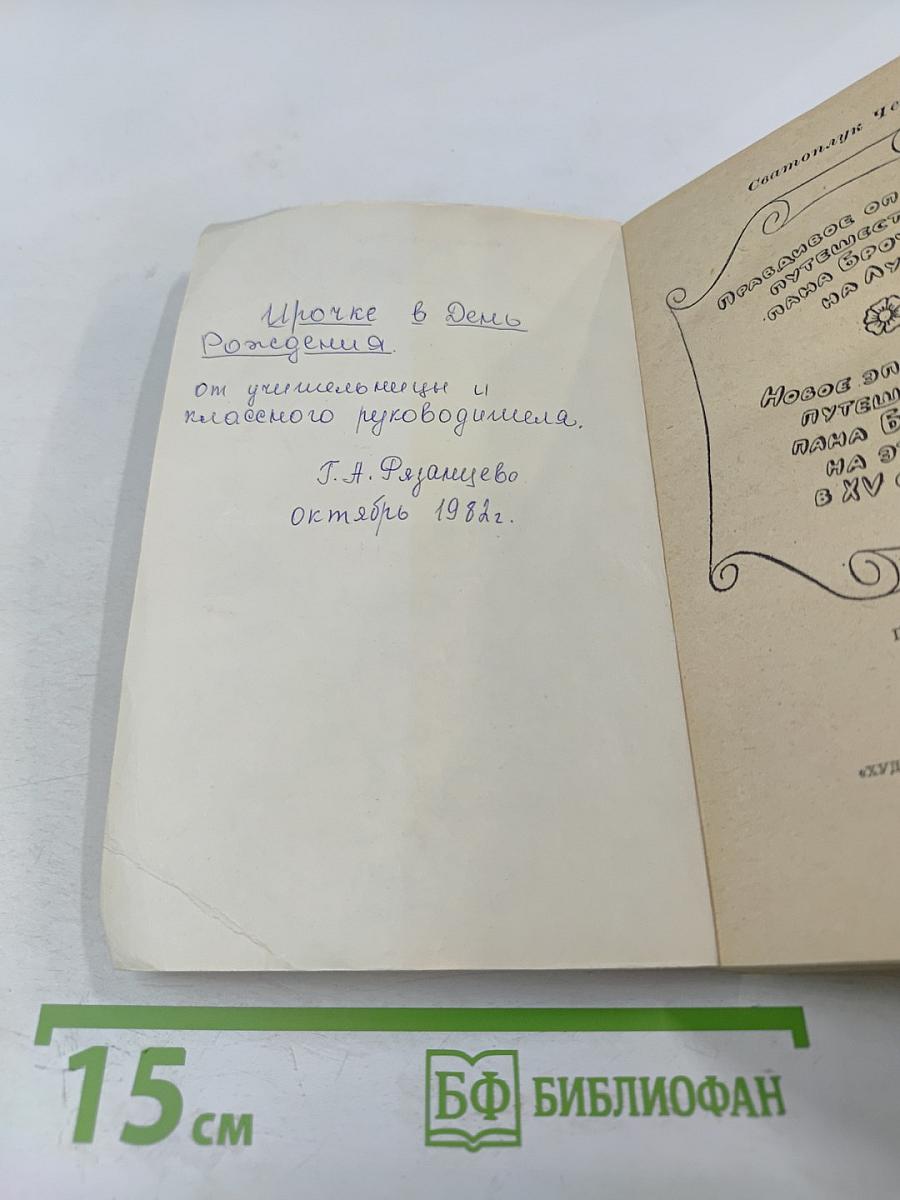 Ирочке в День
Рождения.
от учительницы и
классного руководителя.
Г. А. Рязанцево
октябрь 1982г.
Сватоплук Че
ПРАВДИВОЕ ОП
ПУТЕШЕСТ
ПАНА БРОУ
НА ЛУ
НОВОЕ ЭП
ПУТЕШ
ПАНА Б
НА ЭТ
В XV
«ХУД
15 см
БФ БИБЛИОФАН